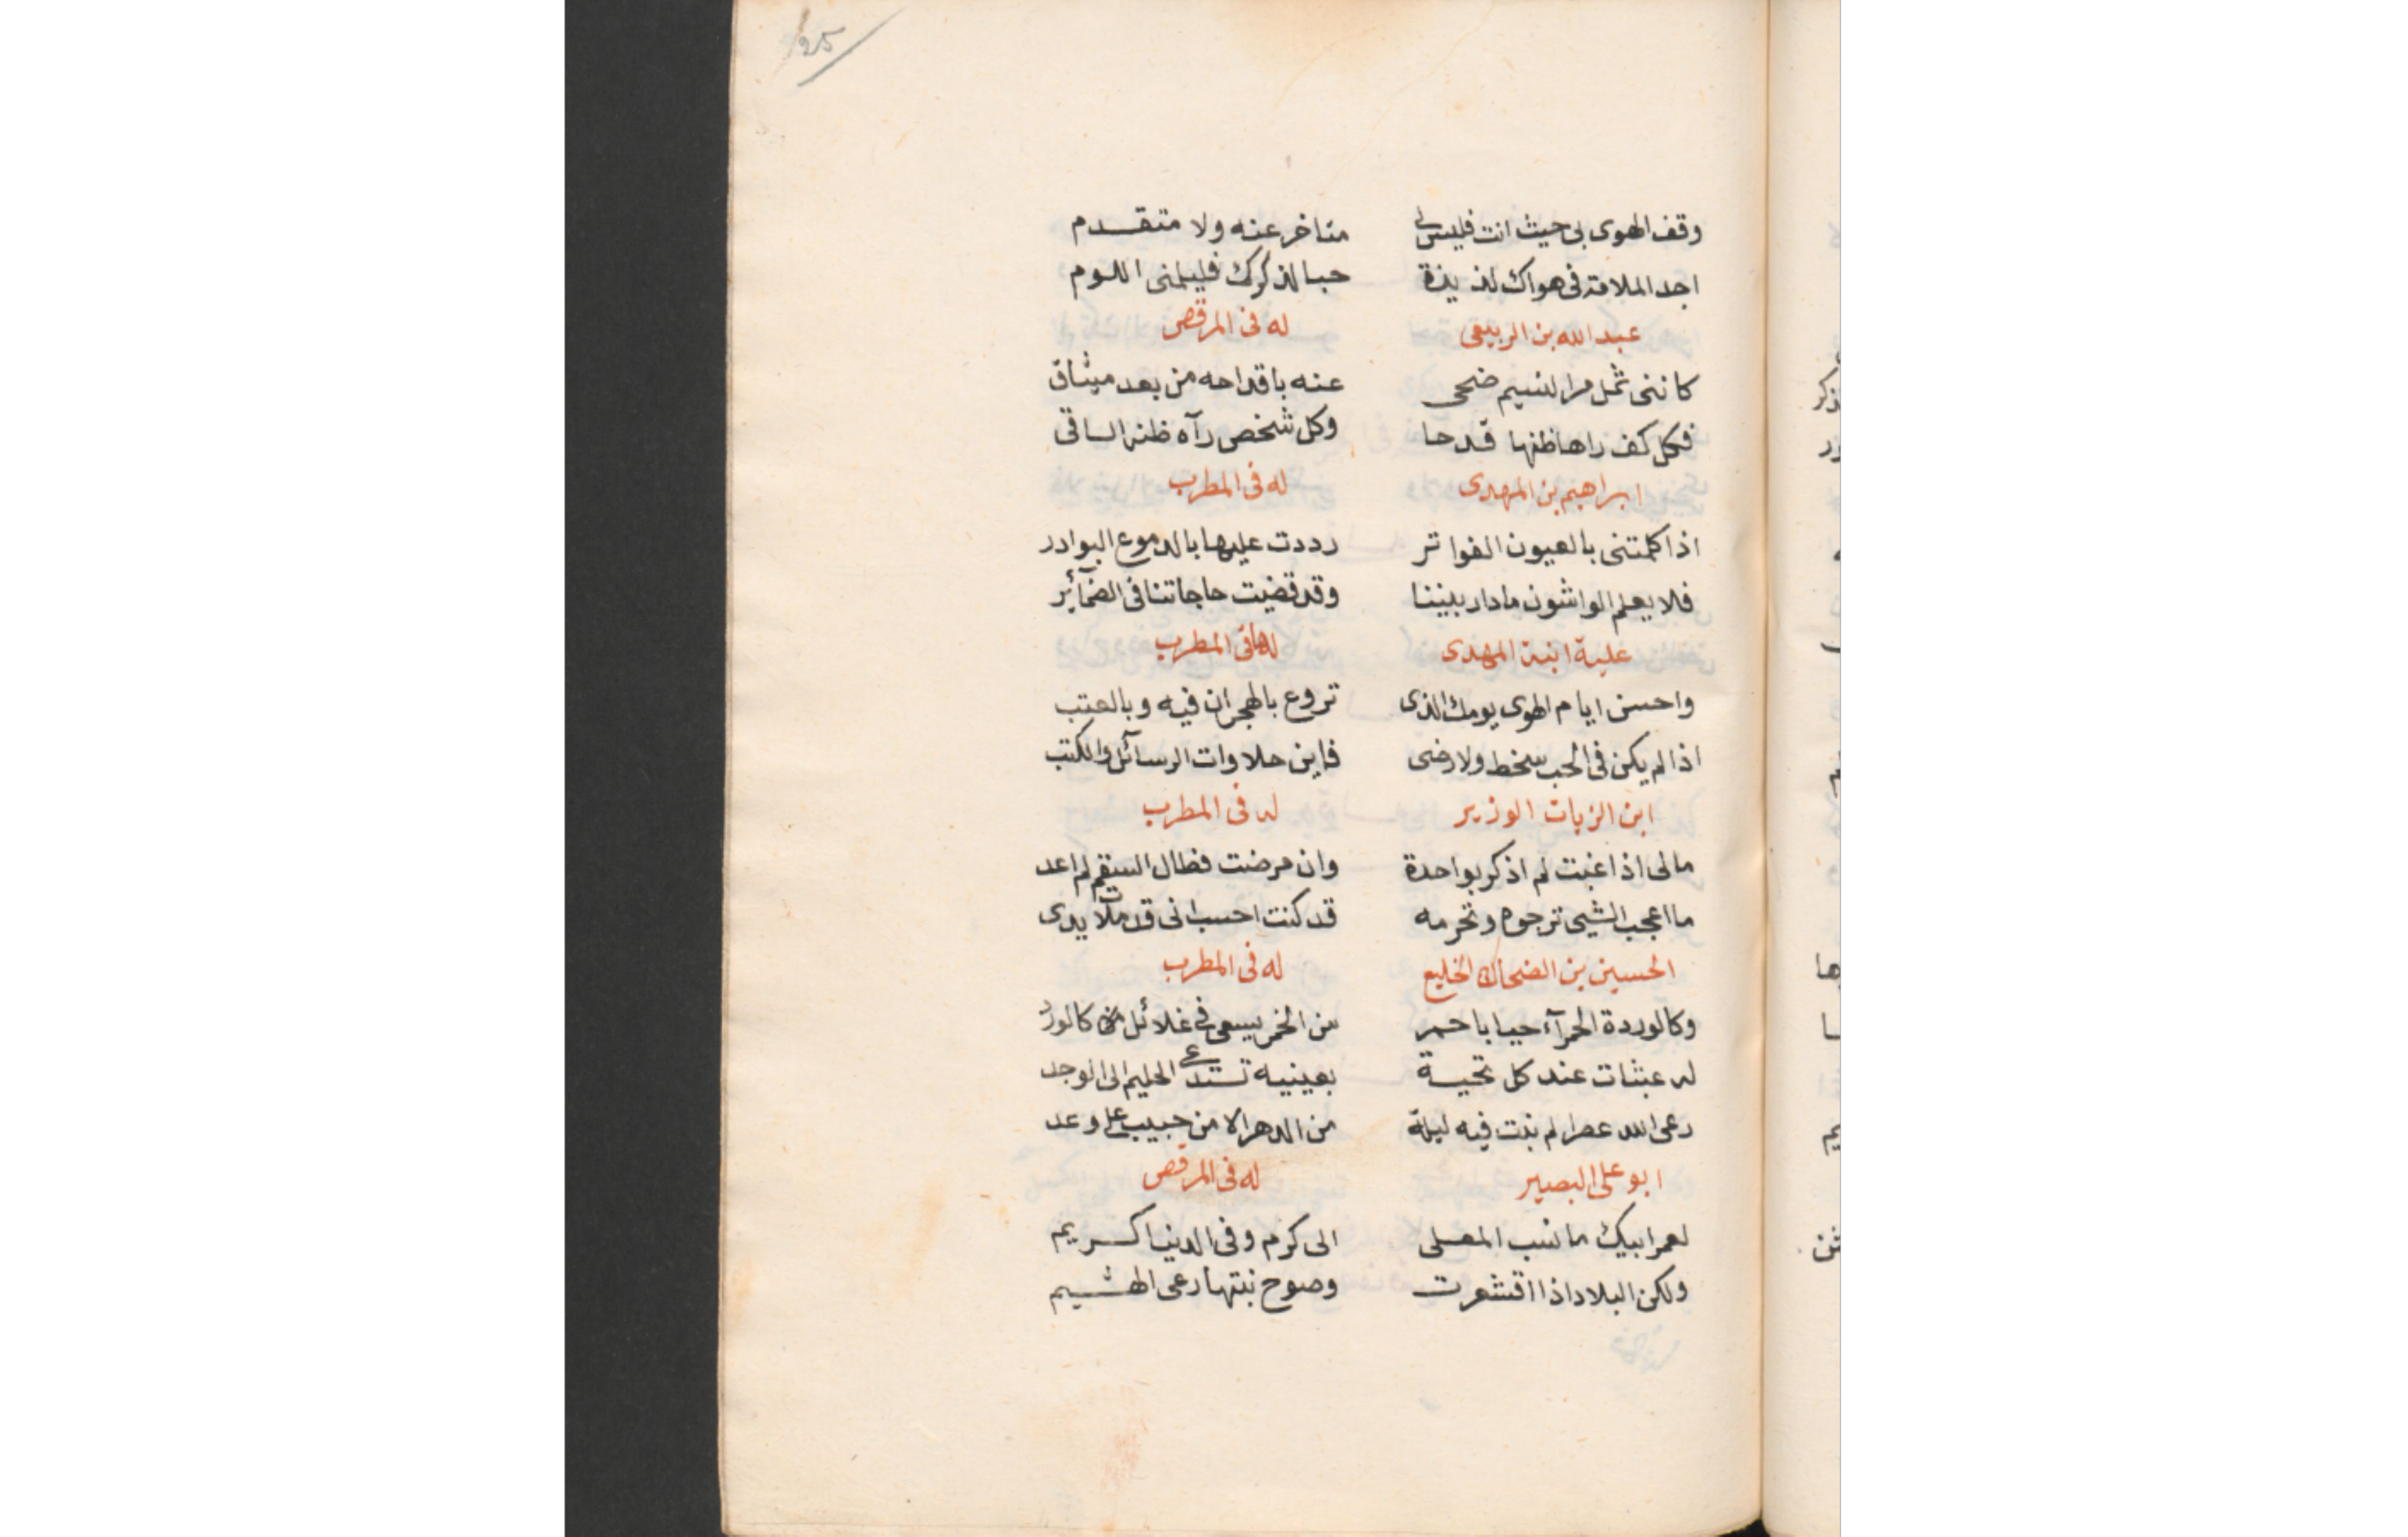 25
وقف الهوى بى حيث انت فليس لى متاخر عنه ولا متقدم
اجد الملامة فى هواك لذيذة حبا لذكرك فليلمنى اللوم
عبد الله بن الربيعى له فى المرقص
كاننى ثمل مر النسيم ضحى عنه باقداحه من بعد ميثاق
فكل كف راها ظنها قدحا وكل شخص رآه ظنه الساقى
ابراهيم بن المهدى له فى المطرب
اذا كلمتنى بالعيون الفواتر رددت عليها بالدموع البوادر
فلا يعلم الواشون مادار بيننا وقد قضيت حاجاتنا فى الضمآئر
علية ابنة المهدى لها فى المطرب
واحسن ايام الهوى يومك الذى تروع بالهجران فيه وبالعتب
اذا لم يكن فى الحب سخط ولا رضى فاين حلاوات الرسآئل والكتب
ابن الزيات الوزير له فى المطرب
مالى اذا غبت لم اذكر بواحدة وان مرضت فطال السقم لم اعد
ما اعجب الشيى ترجوه وتحرمه قد كنت احسب انى قد ملات يدى
الحسين بن الضحاك الخليع له فى المطرب
وكالوردة الحمرآء حيا باحمر من الخمر يسعى فى غلائل كالورد
له عبثات عند كل تحية بعينيه تستدعى الحليم الى الوجد
رعى الله عصرا لم نبت فيه ليلة من الدهر الا من حبيب على وعد
ابو على البصير له فى المرقص
لعمر ابيك ما نسب المعلى الى كرم وفى الدنيا كريم
ولكن البلاد اذا اقشعرت وصوح نبتها رعى الهشيم